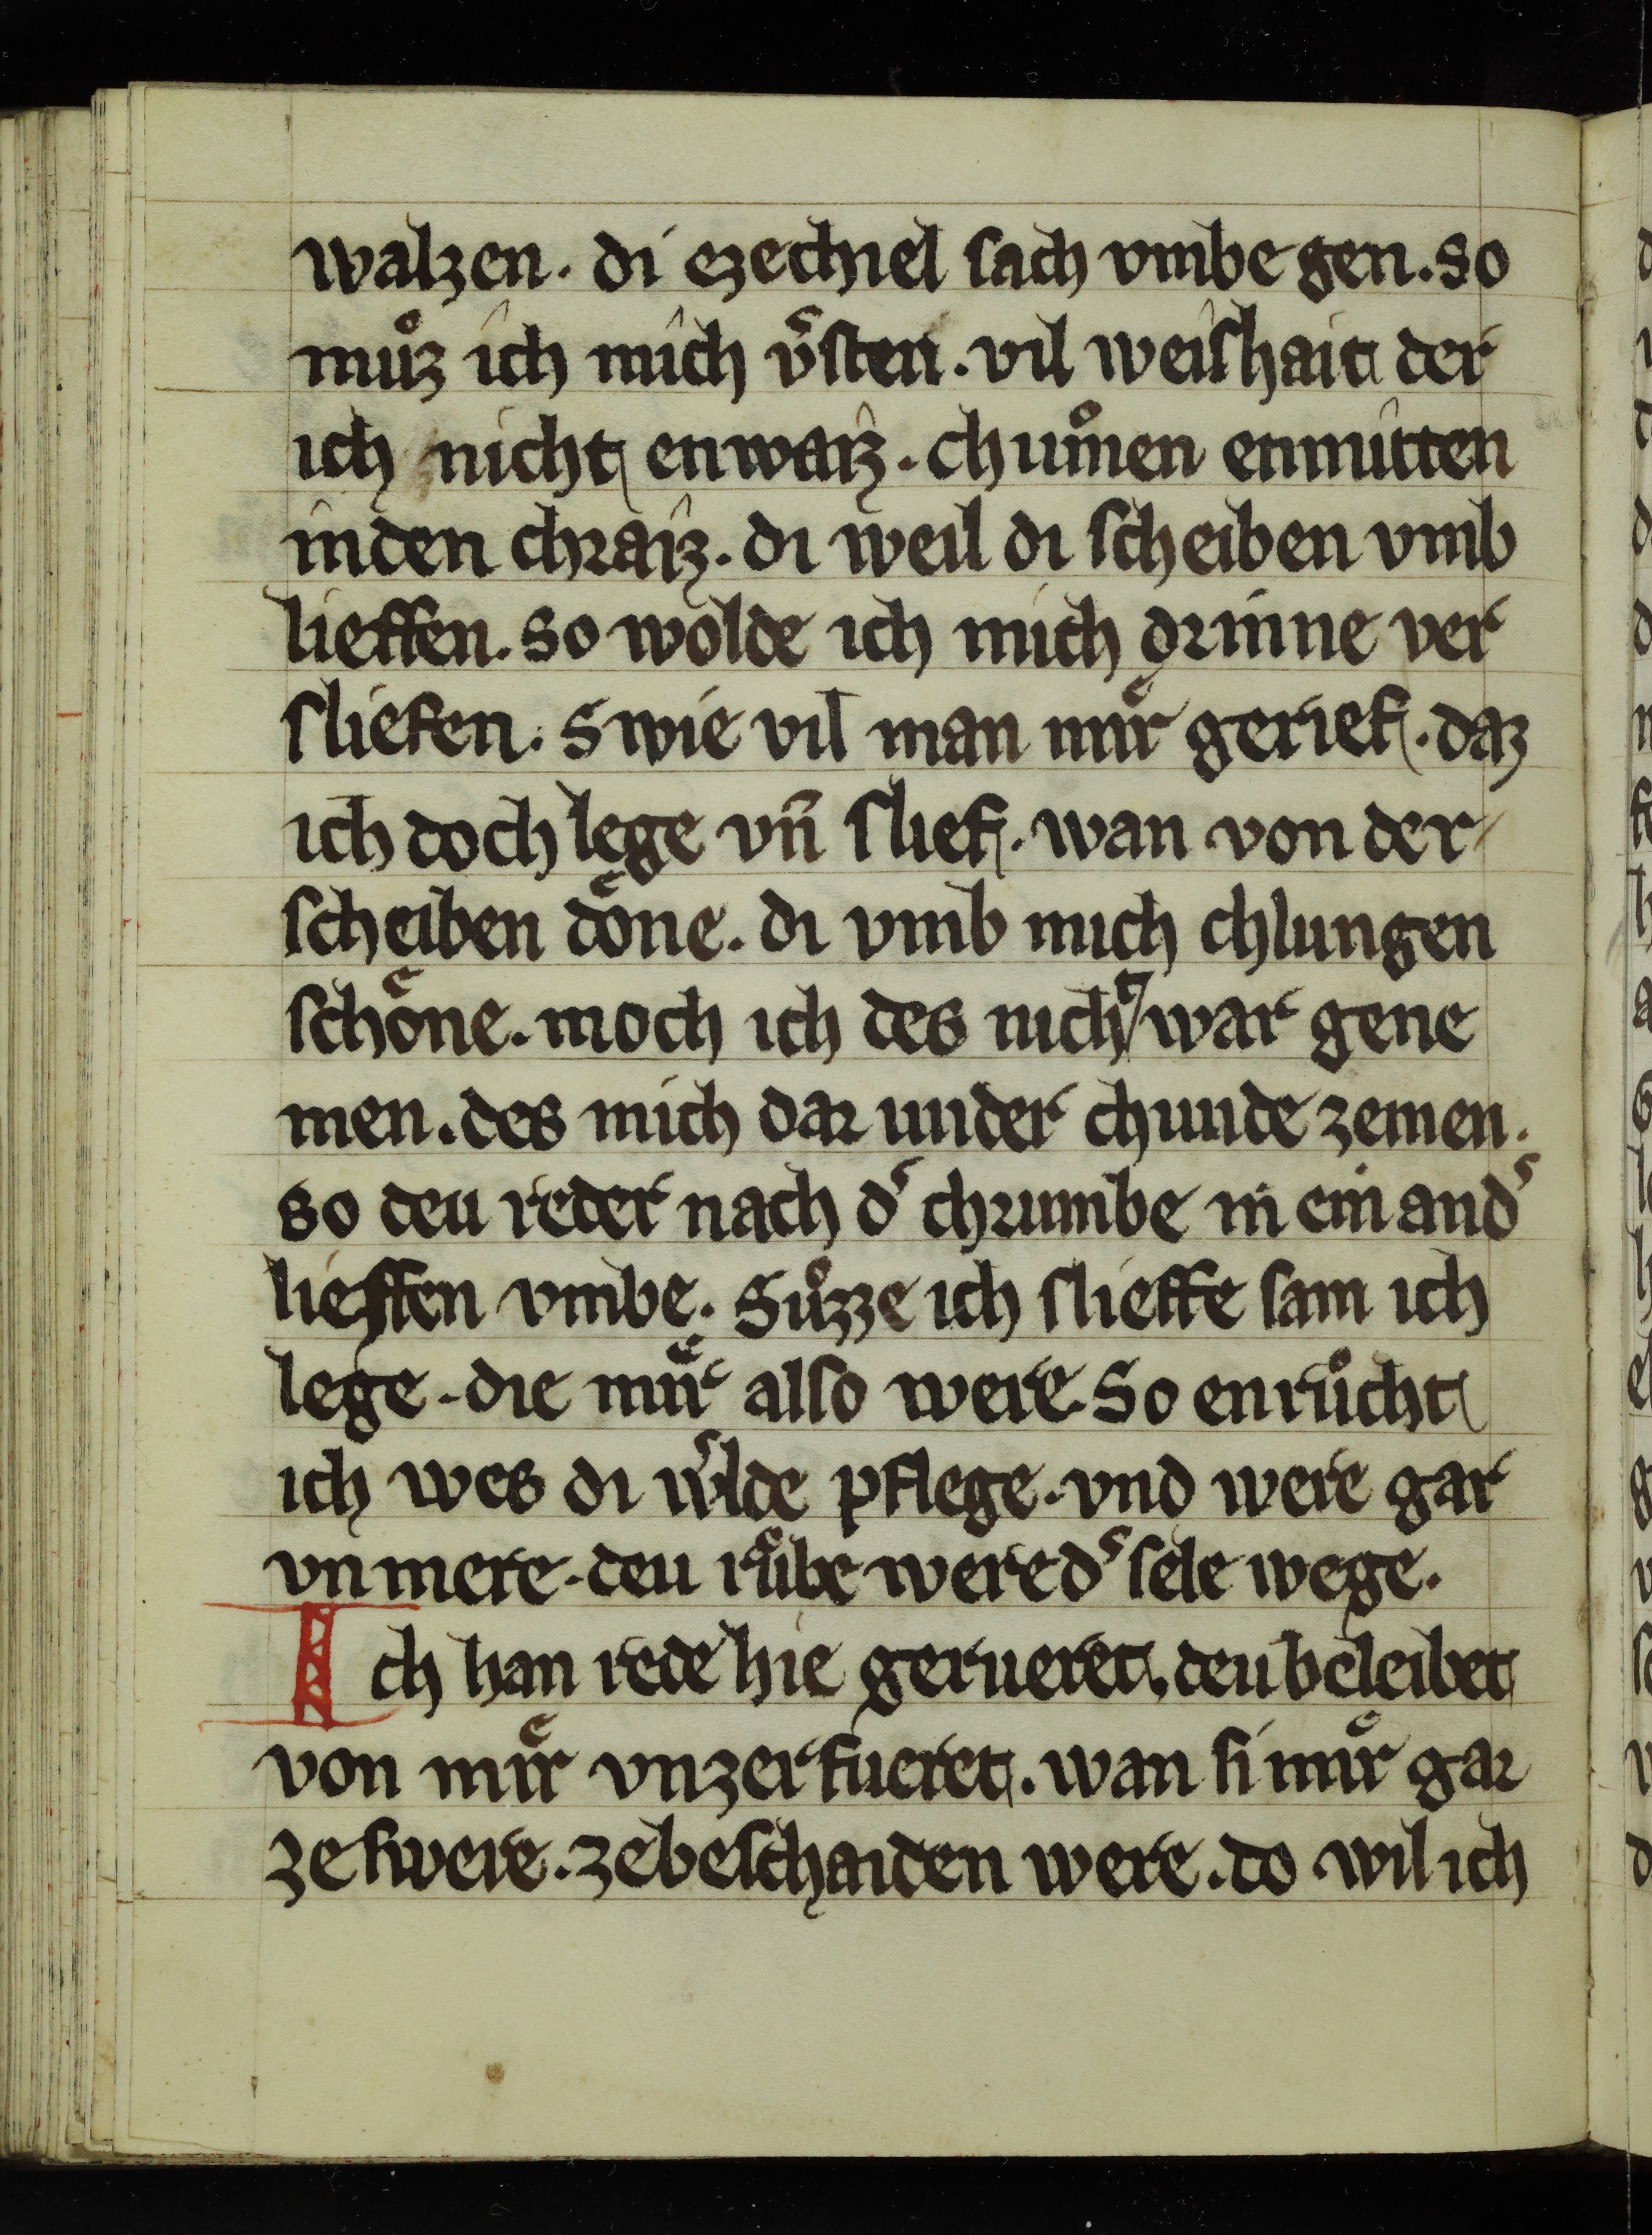 walzen. di ezechiel sach vmbe gen. so
muͦz ich mich v̾sten. vil weishait der
ich nicht enwaiz. chuͦmen enmitten
in den chraiz. di weil di scheiben vmb
lieffen. so wolde ich mich drinne ver
sliefen. swie vil man miͤr gerief. daz
ich doch lege vn̄ slief. wan von der
scheiben doͤne. di vmb mich chlungen
schoͤne. moch ich des nicht war gene
men. des mich dar under chunde zemen.
so deu reder nach d̾ chrumbe in ein and̾
lieffen vmbe. Suͦzze ich slieffe sam ich
lege. die miͤr also were. So enruͦcht
ich wes di w̾lde pflege. vnd were gar
vnmere. deu ruͦbe were d̾ sele wege.
Ich han rede hie gerueret. deu beleibet
von miͤr vnzerfueret. wan si miͤr gar
ze swere. ze beschaiden were. do wil ich